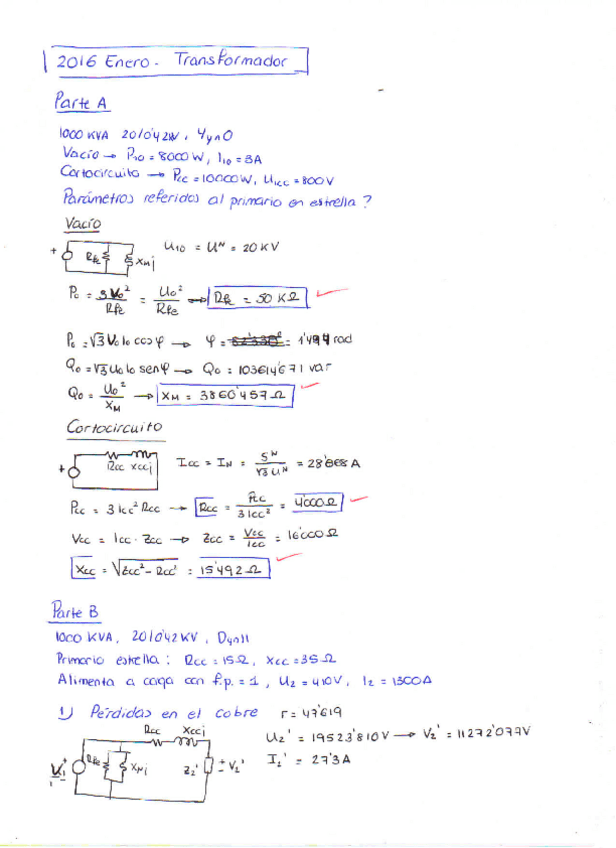 2016 Enero. Transformador
Parte A
1000 KVA 20/0'42 KV, Yyn0
Vacío → P10 = 8000 W, I10 = 3A
Cortocircuito → Pcc = 10000W, U1cc = 800V
Parámetros referidos al primario en estrella?
Vacío
+ Rfe Xmj U10 = Uᴺ = 20 KV
Po = 3Vo²/Rfe = Uo²/Rfe → Rfe = 50 KΩ
Po = √3 Uo Io cos φ → φ = 1'494 rad
Qo = √3 Uo Io sen φ → Qo = 103614'671 var
Qo = Uo²/XM → XM = 3860'457 Ω
Cortocircuito
+ Rcc Xccj Icc = IN = Sᴺ/√3 Uᴺ = 28'868 A
Pcc = 3 Icc² Rcc → Rcc = Pcc/3 Icc² = 4'000 Ω
Vcc = Icc · Zcc → Zcc = Vcc/Icc = 16'000 Ω
Xcc = √Zcc² - Rcc² = 15'492 Ω
Parte B
1000 KVA, 20/0'42 KV, Dyn11
Primario estrella: Rcc = 15Ω, Xcc = 35Ω
Alimenta a carga con f.p. = 1, U2 = 410V, I2 = 1300A
1) Pérdidas en el cobre r = 47'619
Rcc Xccj U2' = 19523'810V → V2' = 11272'077V
V1 + Rfe XMj Z2' ± V2' I2' = 27'3 A